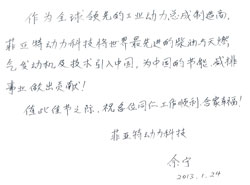 作为全球领先的工业动力总成制造商,
菲亚特动力科技将世界最先进的柴油与天燃
气发动机及技术引入中国,为中国的节能减排
事业做出贡献!
值此佳节之际,祝各位同仁工作顺利,合家幸福!
菲亚特动力科技
余宁
2013.1.24